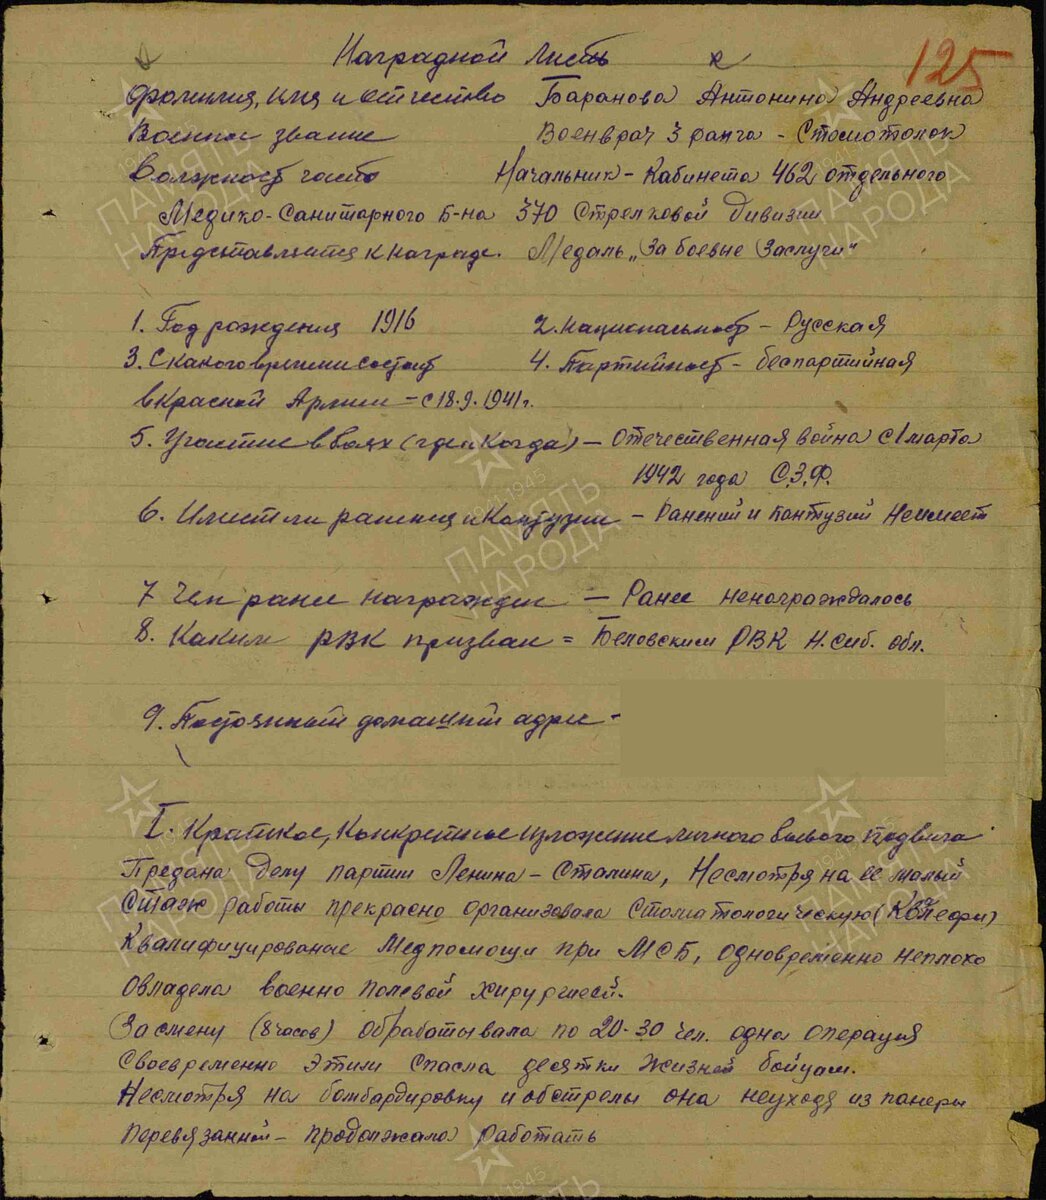 125
Наградной Листъ
Фамилия, имя и отчество Баранова Антонина Андреевна
Военное звание Военврач 3 ранга - Стоматолог
Должность часть Начальник - Кабинета 462 отдельного
Медико-Санитарного Б-на 370 Стрелковой Дивизии
Представляется к награде. Медаль „За боевые Заслуги"
1. Год рождения 1916 2. Национальность - Русская
3. С какого времени состоит 4. Партийность - беспартийная
в Красной Армии - с 18.9.1941 г.
5. Участие в боях (где и когда) - Отечественная война с 1 марта
1942 года С.З.Ф.
6. Имеет ли ранения и Контузии - Ранений и контузий Неимеет
7 Чем ранее награжден - Ранее ненограждалось
8. Каким РВК призван = Беловским РВК Н. Сиб. обл.
9. Постоянный домашний адрес -
I. Краткое, Конкретное изложение личного боевого подвига
Предана Делу партии Ленина - Сталина, Несмотря на её малый
Стаж работы прекрасно организовала Стоматологическую
Квалифицирование Медпомощи при МСБ, одновременно неплохо
овладела военно полевой хирургией.
За смену (8 часов) обрабатывала по 20-30 чел. одна операция
Своевременно этим спасла десятки жизней бойцам.
Несмотря на бомбардировку и обстрелы она неуходя из
перевязанной - продолжала работать
ПАМЯТЬ НАРОДА
1941-1945